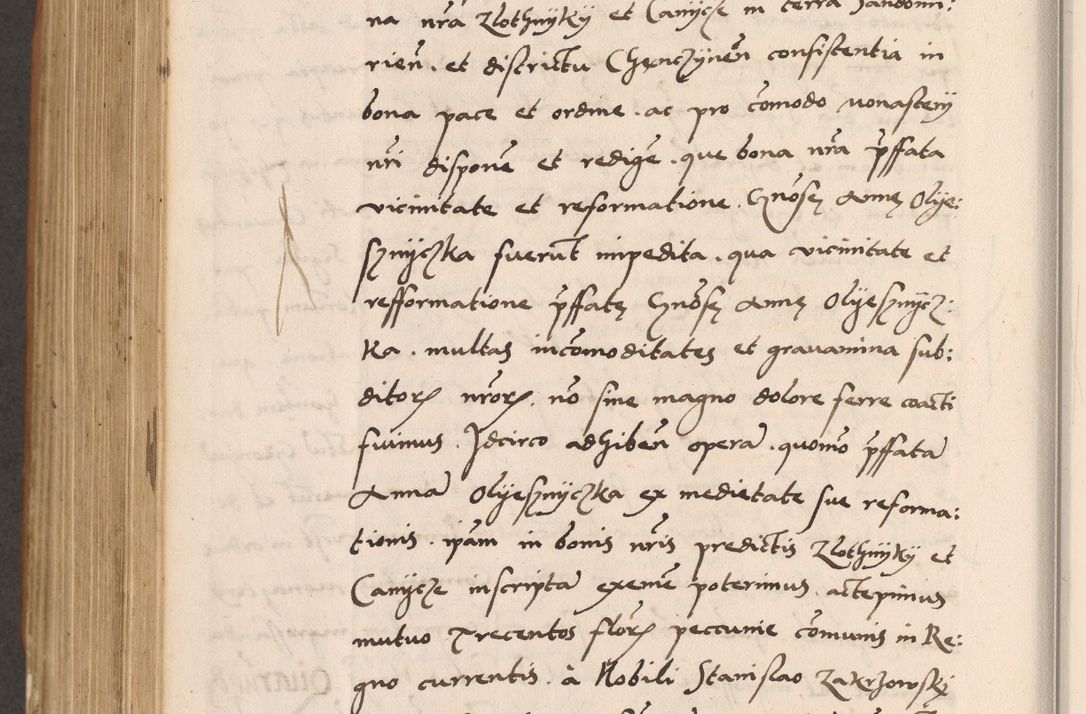 na nr̃a Zlothnyky et Canycze in terra Sandomi:
rien̄. et districtu Chenczynen̄ consistentia in
bona pace et ordine. ac pro cõmodo monastery
nr̃i disponẽ et redigẽ. que bona nr̃a p̃ffata
vicinitate et reformatione. Gñosę Annę Olye:
sznyczka fuerũt impedita. qua vicinitate et
refformatione p̃ffatę Gñosę Annę Olyesznycz:
ka. multas incõmoditates et gravamina sub:
ditorꝝ nr̃orꝝ. nõ sine magno dolore ferre coacti
fuimus. Idcirco adhiben̄ operã. quomõ p̃ffatã
Annã Olyesznyczka ex medietate sue reforma:
tionis. ip̃am in bonis nr̃is predictis Zlothnyky et
Canycze inscriptã exemẽ poterimus. accepimus
mutuo Trecentos florꝝ peccunie cõmunis in Re:
gno currentis. à Nobili Stanislao Zakrzowsky